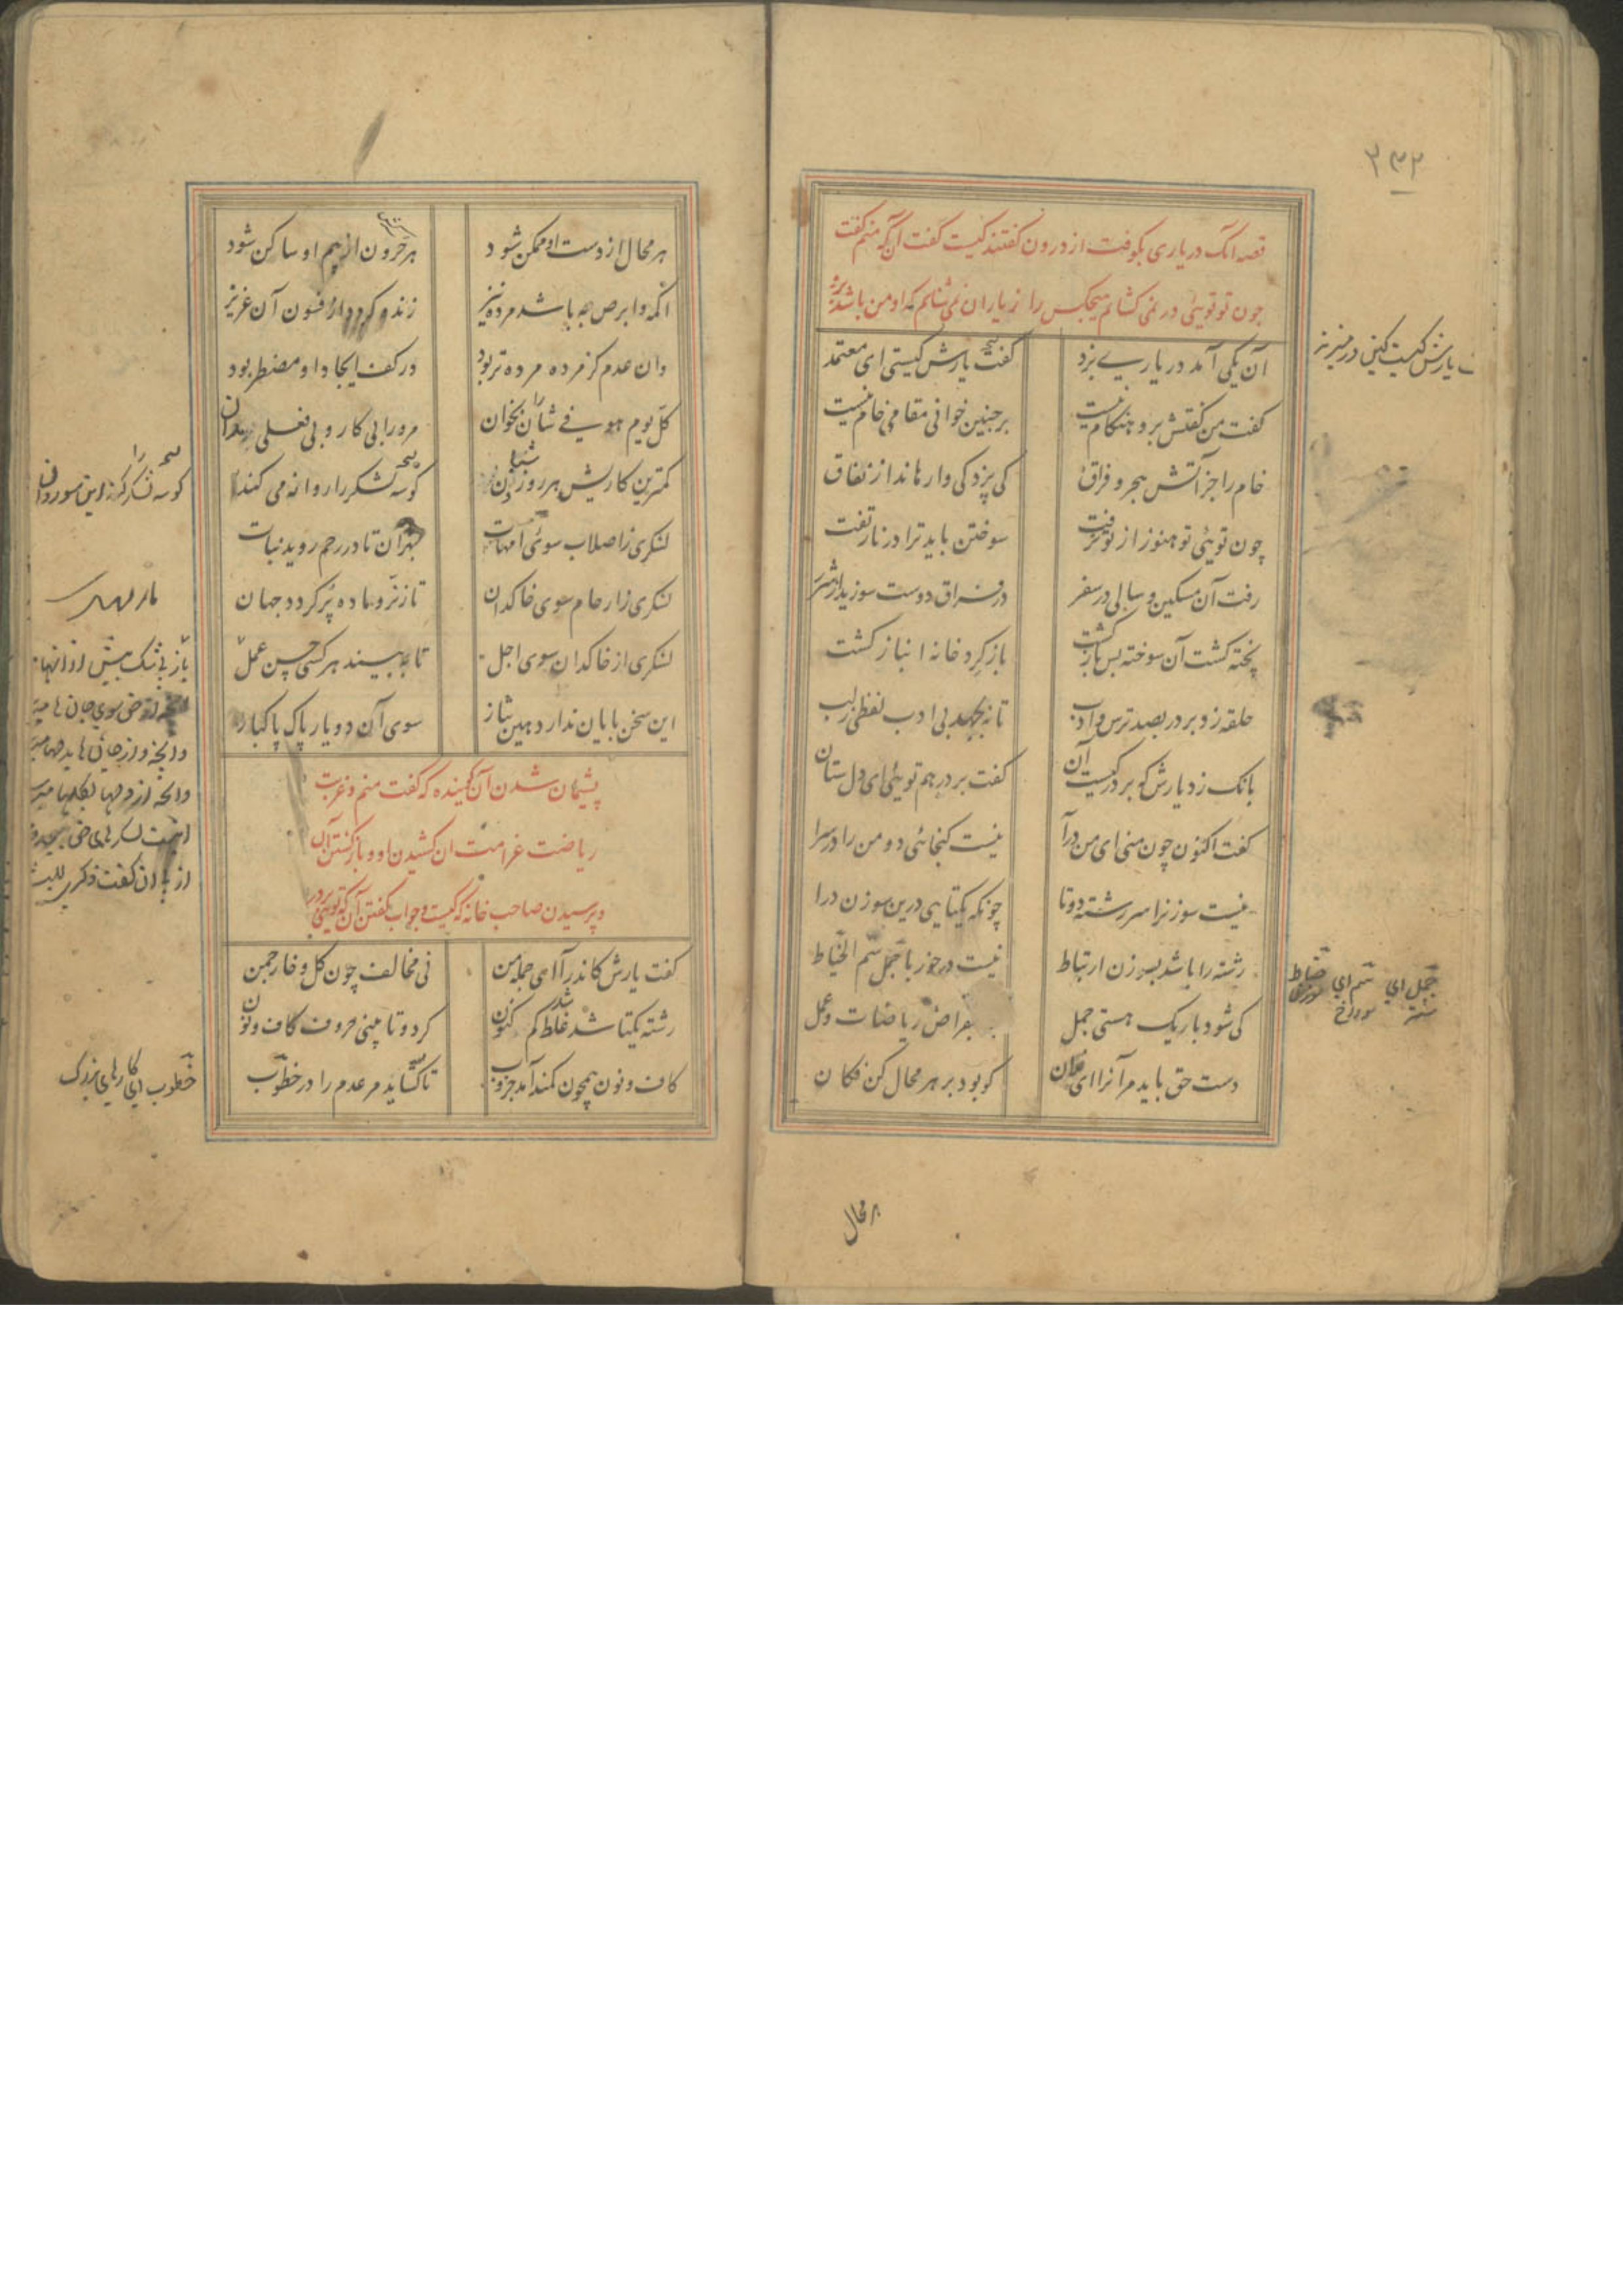 ۳۳۲
قصه انک در یاری بکوفت از درون گفتند کیست گفت آنکه منم گفت
چون تو توئی در نمی کشایم هیچکس را از یاران نمی شناسم که او من باشد برو
آن یکی آمد در یاری بزد
گفت یارش کیستی ای معتمد
گفت من گفتش برو هنگام نیست
بر چنین خوانی مقام خام نیست
خام را جز آتش هجر و فراق
کی پزد کی وارهاند از نفاق
چون توئی تو هنوز از تو نرفت
سوختن باید ترا در نار تفت
رفت آن مسکین و سالی در سفر
در فراق دوست سوزید از شرر
پخته کشت آن سوخته پس باز کشت
باز کرد خانه انباز کشت
حلقه زد بر در بصد ترس و ادب
تا نجهد بی ادب لفظی ز لب
بانک زد یارش که بر در کیست آن
گفت بر در هم توئی ای دل ستان
گفت اکنون چون منی ای من درآ
نیست کنجائی دو من را در سرا
نیست سوزن را سر رشته دوتا
چونکه یکتایی درین سوزن درا
رشته را باشد بسوزن ارتباط
نیست در خور با جمل سم الخیاط
کی شود باریک هستی جمل
بمقراض ریاضات و عمل
دست حق باید مر آنرا ای فلان
کو بود بر هر محال کن فکان
یارش کیست
جمل ای شتر
سم ای سوراخ
خیاط سوزن
هر محال
هر محال از دست او ممکن شود
هر حرون از بیم او ساکن شود
اکمه و ابرص چه باشد مرده نیز
زنده گردد از فسون آن عزیز
وان عدم کز مرده مرده تر بود
در کف ایجاد او مضطر بود
کل یوم هو فی شأن بخوان
مرورا بی کار و بی فعلی مدان
کمترین کاریش هر روز آن
کو سه لشکر را روانه می کند
لشکری ز اصلاب سوی امهات
بهر آن تا در رحم روید نبات
لشکری ز ارحام سوی خاکدان
تا ز نر و ماده پر گردد جهان
لشکری از خاکدان سوی اجل
تا ببیند هر کسی حسن عمل
این سخن پایان ندارد هین بتاز
سوی آن دو یار پاک پاکباز
پشیمان شدن آن گوینده که گفت منم و غربت
ریاضت غرامت آن کشیدن او و باز گشتن آن
و پرسیدن صاحب خانه که کیست و جواب گفتن آن که توئی بر در
گفت یارش کاندرآ ای جمله من
نی مخالف چون گل و خار چمن
رشته یکتا شد غلط کم شد کنون
گر دوتا بینی حروف کاف و نون
کاف و نون همچون کمند آمد جذوب
تا کشاید مر عدم را در خطوب
باز بی شک بیش از آنها
آنچه از حق سوی جانها میرسد
وانچه از جانها بدلها میرسد
وانچه از دلها بگلها میرسد
اینت لشکرهای حق بیحد و
از پی آن گفت ذکری للبشر
خطوب ای کارهای بزرک